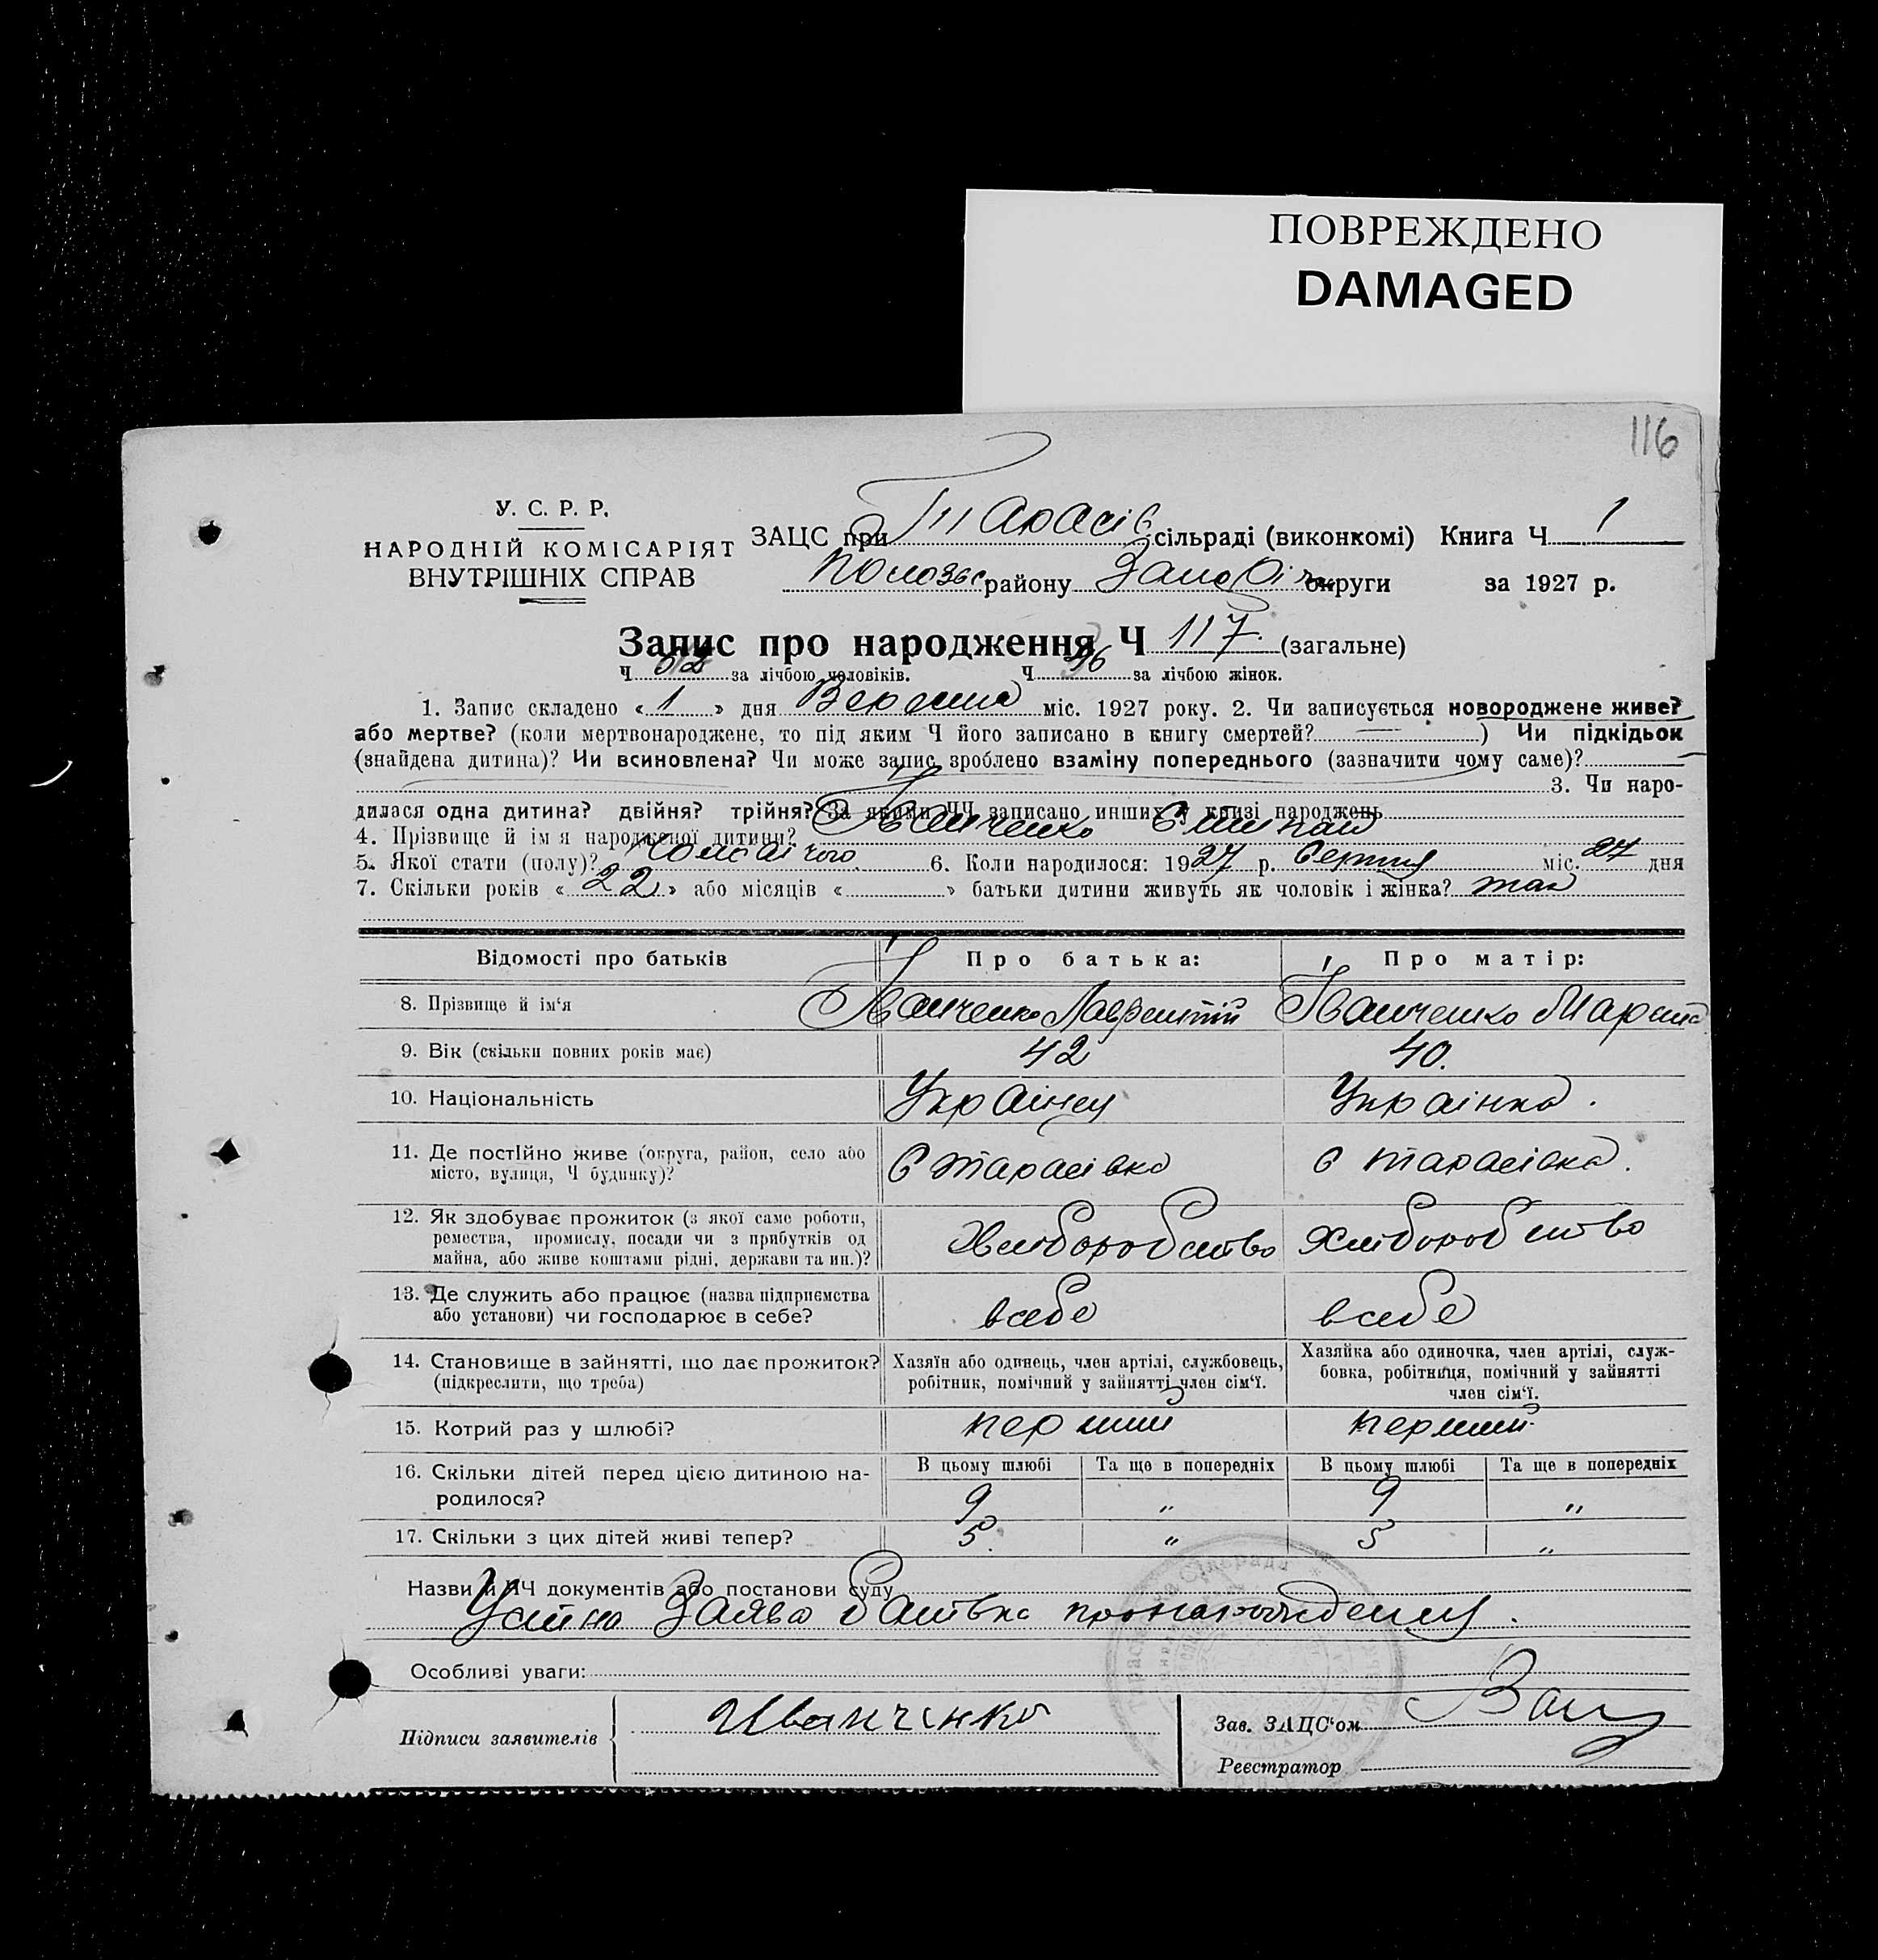 ПОВРЕЖДЕНО
DAMAGED
116
У. С. Р. Р.
НАРОДНІЙ КОМІСАРІЯТ
ВНУТРІШНІХ СПРАВ
ЗАЦС при Тарасів сільраді (виконкомі) Книга Ч 1
району округи за 1927 р.
Запис про народження Ч 117. (загальне)
Ч за лічбою чоловіків. Ч за лічбою жінок.
1. Запис складено « 1 » дня Вересня міс. 1927 року. 2. Чи записується новороджене живе?
або мертве? (коли мертвонароджене, то під яким Ч його записано в книгу смертей? — ) Чи підкідьок
(знайдена дитина)? Чи всиновлена? Чи може запис зроблено взаміну попереднього (зазначити чому саме)?
3. Чи наро-
дилася одна дитина? двійня? трійня? За якими ЧЧ записано инших у книзі народжень
4. Прізвище й ім я народженої дитини? Іванченко Степан
5. Якої стати (полу)? 6. Коли народилося: 1927 р. Серпня міс. 27 дня
7. Скільки років « 22 » або місяців « » батьки дитини живуть як чоловік і жінка? так
Відомості про батьків Про батька: Про матір:
8. Прізвище й ім'я Іванченко Лаврентій Іванченко
9. Вік (скільки повних років має) 42 40.
10. Національність Українец Українка.
11. Де постійно живе (округа, район, село або
місто, вулиця, Ч будинку)? с Тарасівка с Тарасівка.
12. Як здобуває прожиток (з якої саме роботи,
ремества, промислу, посади чи з прибутків од
майна, або живе коштами рідні, держави та ин.)? Хліборобство Хліборобство
13. Де служить або працює (назва підприємства
або установи) чи господарює в себе? в себе в себе
14. Становище в зайнятті, що дає прожиток?
(підкреслити, що треба)
Хазяїн або одинець, член артілі, службовець,
робітник, помічний у зайнятті член сім'ї.
Хазяйка або одиночка, член артілі, служ-
бовка, робітниця, помічний у зайнятті
член сім'ї.
15. Котрий раз у шлюбі? перший перший
16. Скільки дітей перед цією дитиною на-
родилося?
В цьому шлюбі Та ще в попередніх В цьому шлюбі Та ще в попередніх
9 „ 9 „
17. Скільки з цих дітей живі тепер? 5. „ 5 „
Назви й ЧЧ документів або постанови суду
Устна Заява батька про народження.
Особливі уваги:
Підписи заявителів Иванченко
Зав. ЗАЦС'ом
Реєстратор